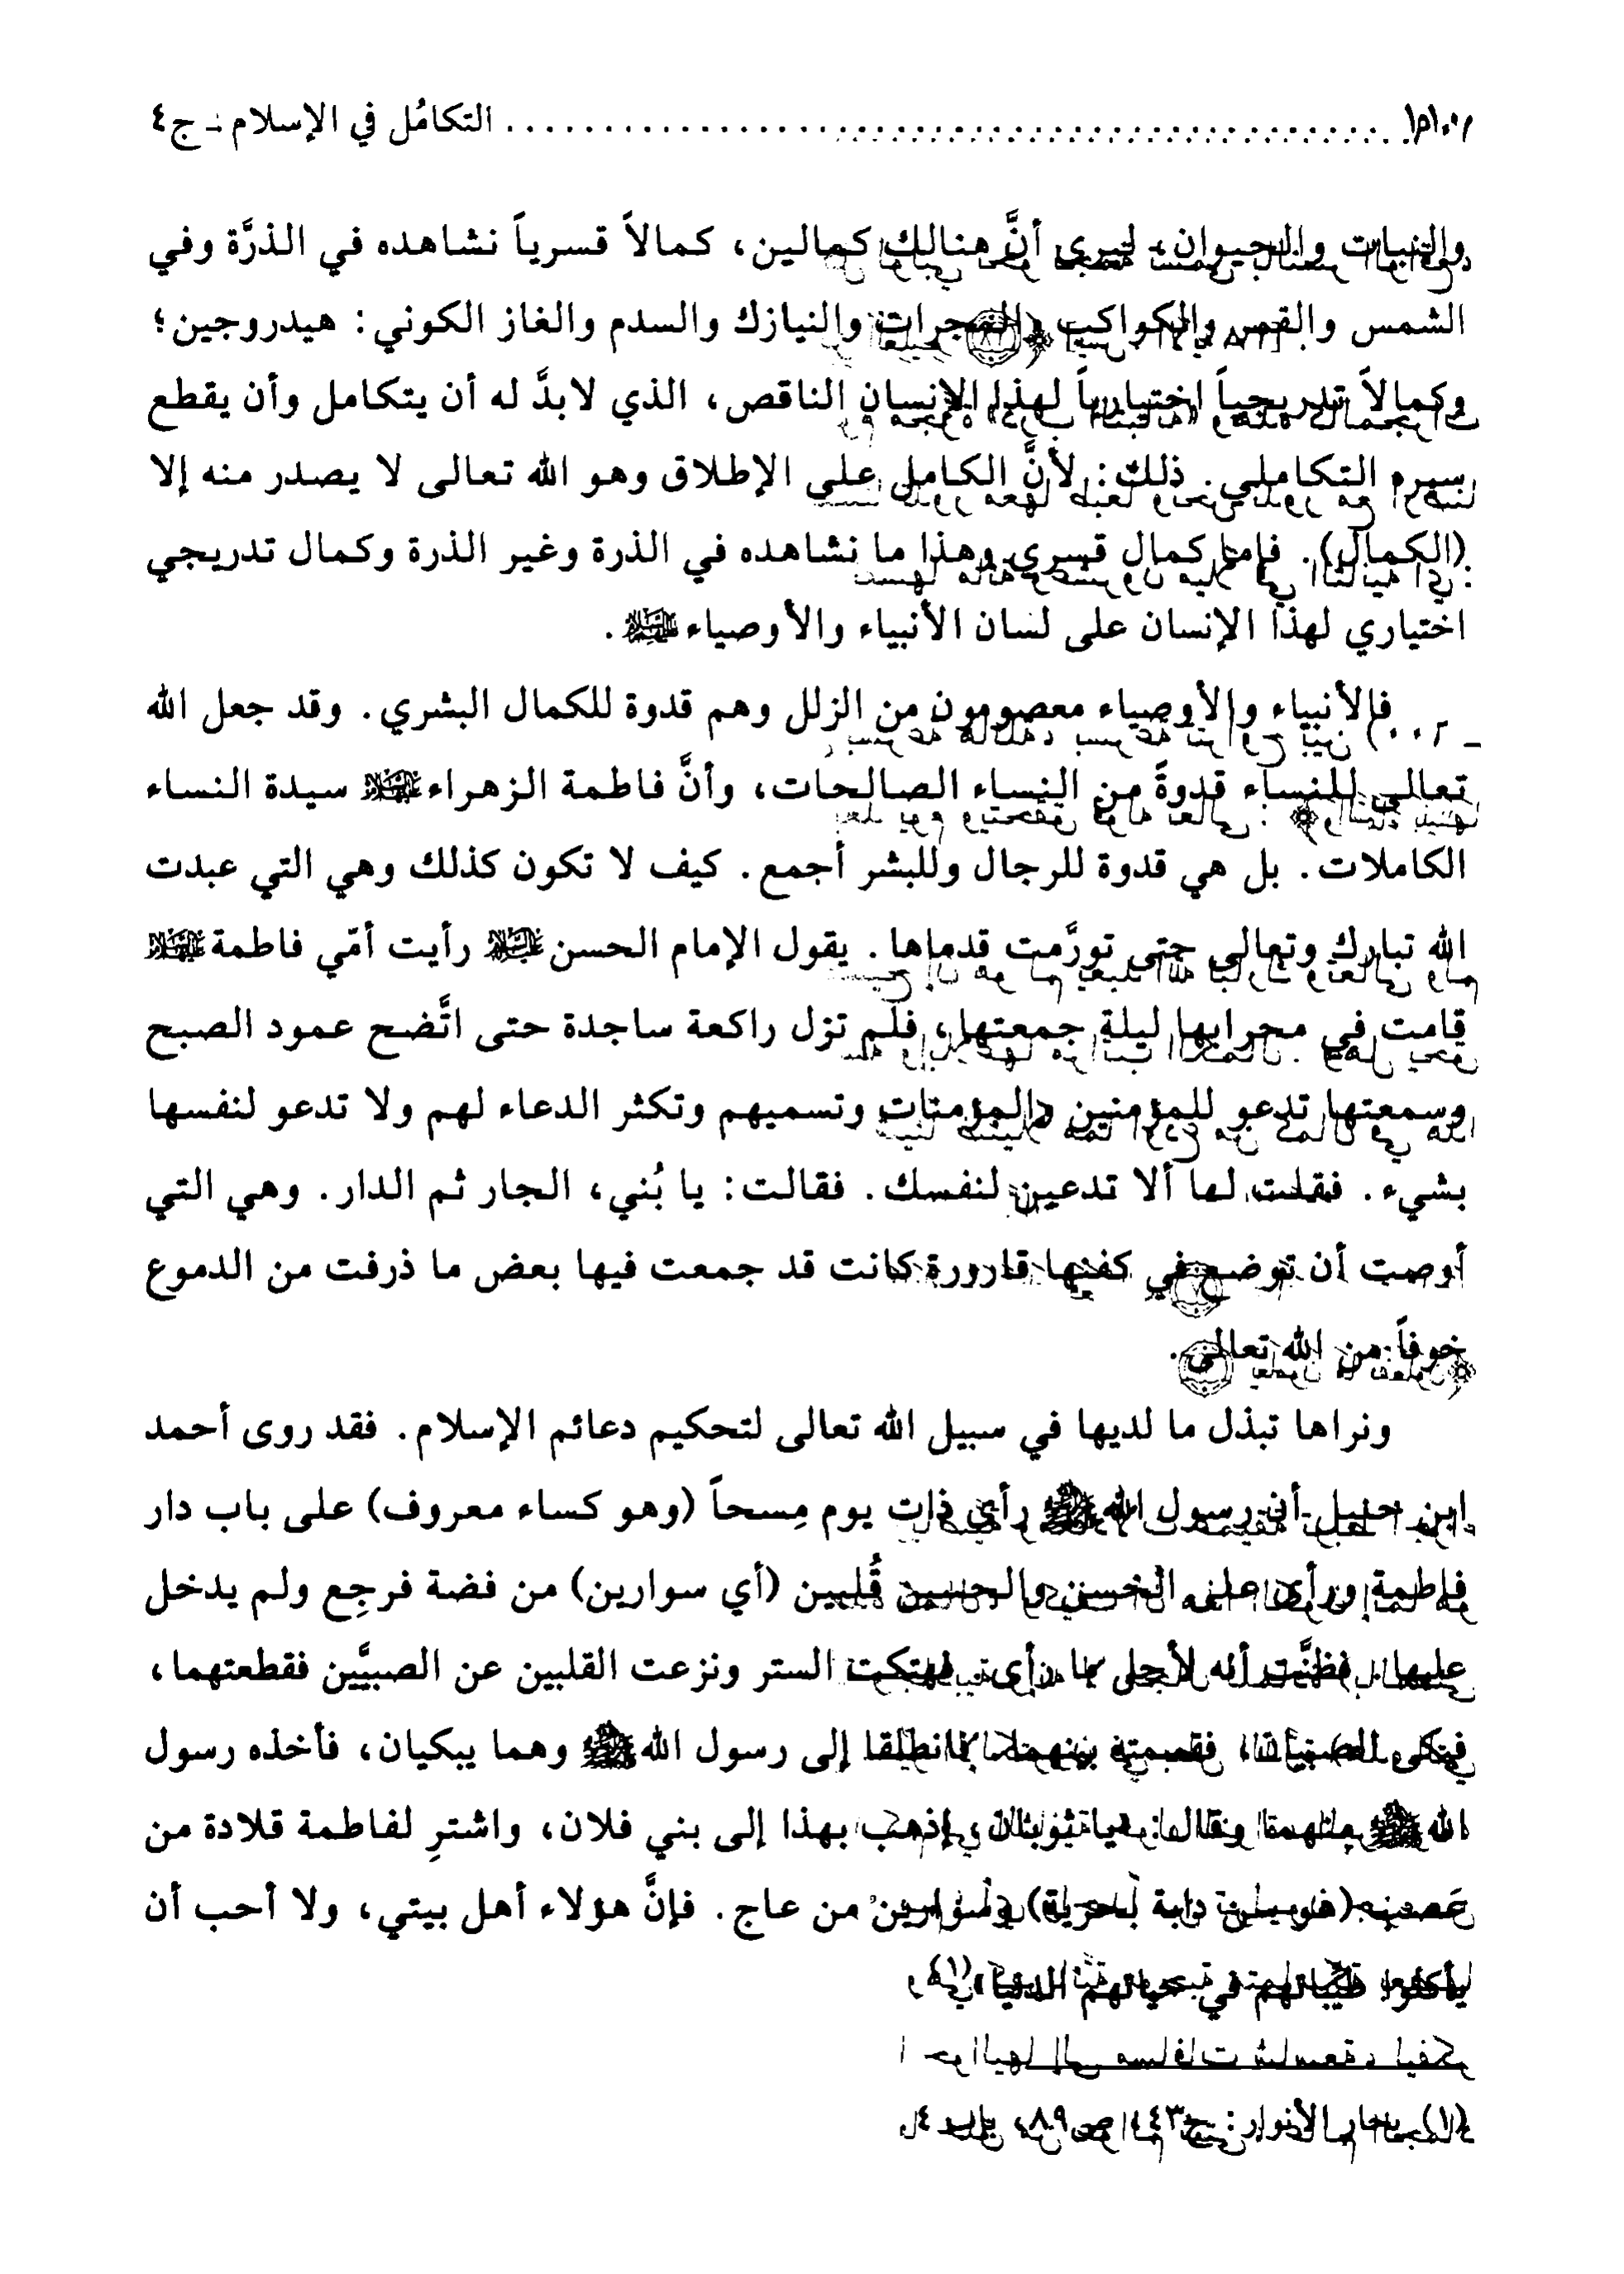 التكامُل في الإسلام - ج٤
والنبات والحيوان، ليرى أنَّ هنالك كمالين، كمالاً قسرياً نشاهده في الذرَّة وفي
الشمس والقمر والكواكب والمجرات والنيازك والسدم والغاز الكوني: هيدروجين؛
وكمالاً تدريجياً اختيارياً لهذا الإنسان الناقص، الذي لابدَّ له أن يتكامل وأن يقطع
سيره التكاملي. ذلك: لأنَّ الكامل على الإطلاق وهو الله تعالى لا يصدر منه إلا
(الكمال). فإما كمال قسري وهذا ما نشاهده في الذرة وغير الذرة وكمال تدريجي
اختياري لهذا الإنسان على لسان الأنبياء والأوصياء عليهم السلام.
فالأنبياء والأوصياء معصومون من الزلل وهم قدوة للكمال البشري. وقد جعل الله
تعالى للنساء قدوةً من النساء الصالحات، وأنَّ فاطمة الزهراء عليها السلام سيدة النساء
الكاملات. بل هي قدوة للرجال وللبشر أجمع. كيف لا تكون كذلك وهي التي عبدت
الله تبارك وتعالى حتى تورَّمت قدماها. يقول الإمام الحسن عليه السلام رأيت أمّي فاطمة عليها السلام
قامت في محرابها ليلة جمعتها، فلم تزل راكعة ساجدة حتى اتَّضح عمود الصبح
وسمعتها تدعو للمؤمنين والمؤمنات وتسميهم وتكثر الدعاء لهم ولا تدعو لنفسها
بشيء. فقلت لها ألا تدعين لنفسك. فقالت: يا بُني، الجار ثم الدار. وهي التي
أوصت أن توضع في كفنها قارورة كانت قد جمعت فيها بعض ما ذرفت من الدموع
خوفاً من الله تعالى.
ونراها تبذل ما لديها في سبيل الله تعالى لتحكيم دعائم الإسلام. فقد روى أحمد
ابن حنبل أن رسول الله ﷺ رأى ذات يوم مِسحاً (وهو كساء معروف) على باب دار
فاطمة ورأى على الحسن والحسين قُلبين (أي سوارين) من فضة فرجِع ولم يدخل
عليها. فظنَّت أنه لأجل ما رأى. فهتكت الستر ونزعت القلبين عن الصبيَّين فقطعتهما،
فبكى الصبيان، فقسمته بينهما، فانطلقا إلى رسول الله ﷺ وهما يبكيان، فأخذه رسول
الله ﷺ منهما وقال: يا ثوبان، إذهب بهذا إلى بني فلان، واشترِ لفاطمة قلادة من
عَصب (هو سن دابة بحرية) وسوارين من عاج. فإنَّ هؤلاء أهل بيتي، ولا أحب أن
يأكلوا طيباتهم في حياتهم الدنيا (١)
(١) بحار الأنوار: ج٤٣، ص٨٩